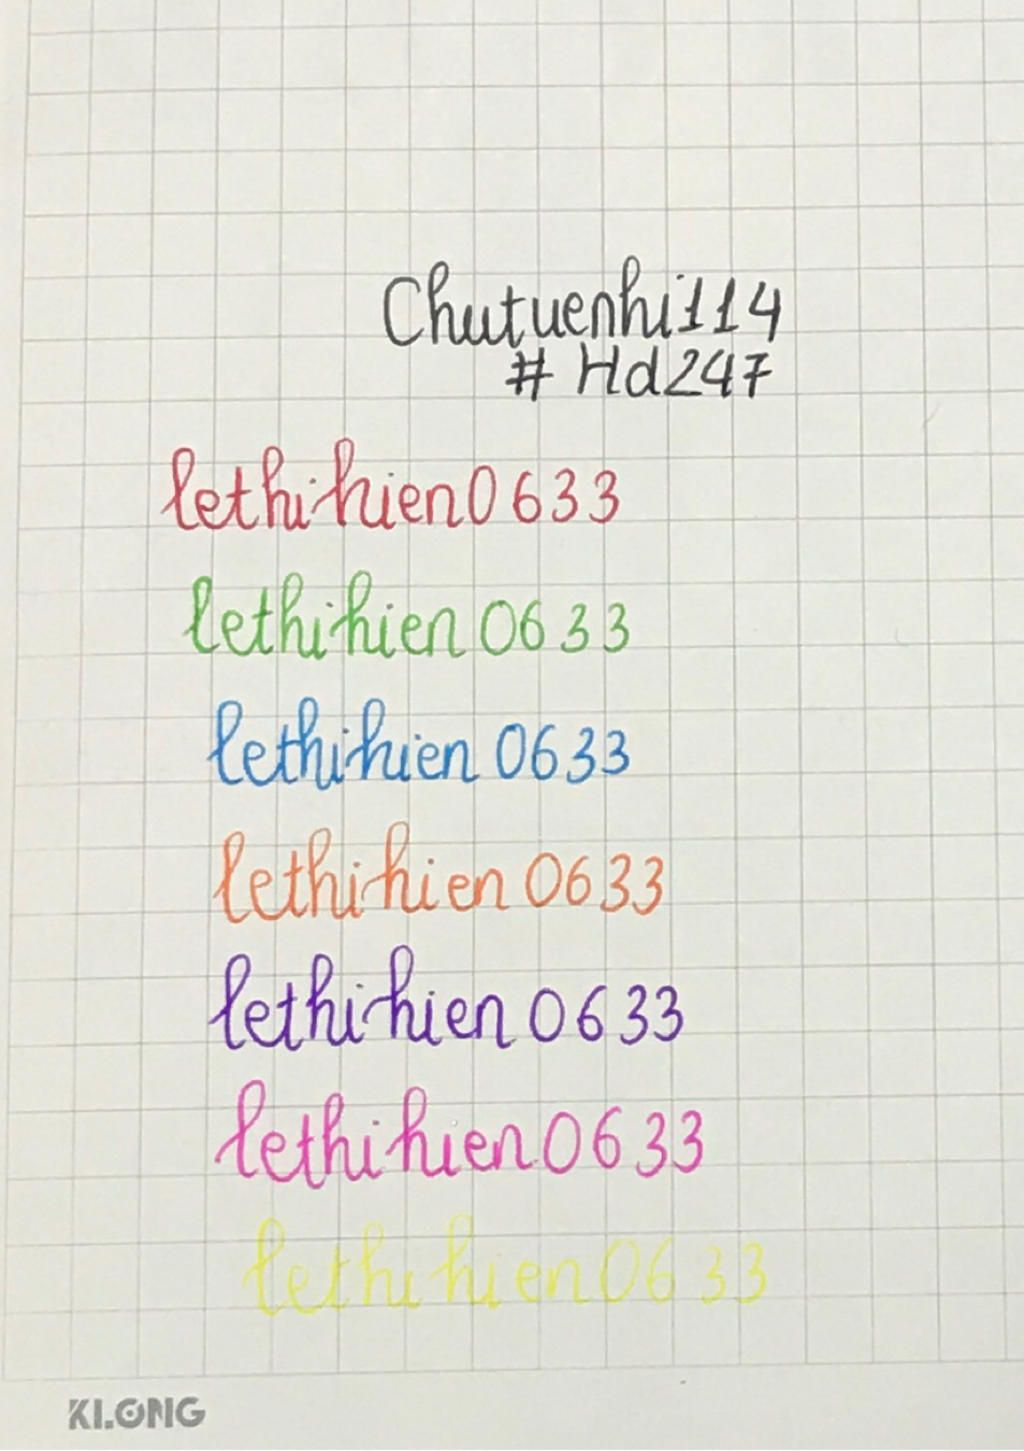 Chutuenhi114
# Hd247
lethihien0633
lethihien 0633
lethihien 0633
lethihien 0633
lethihien 0633
lethihien0633
lethihien0633
KLONG